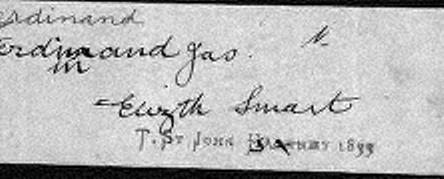 erdinand
erdinand Jas.
in
Elizth Smart
T. St John 1899